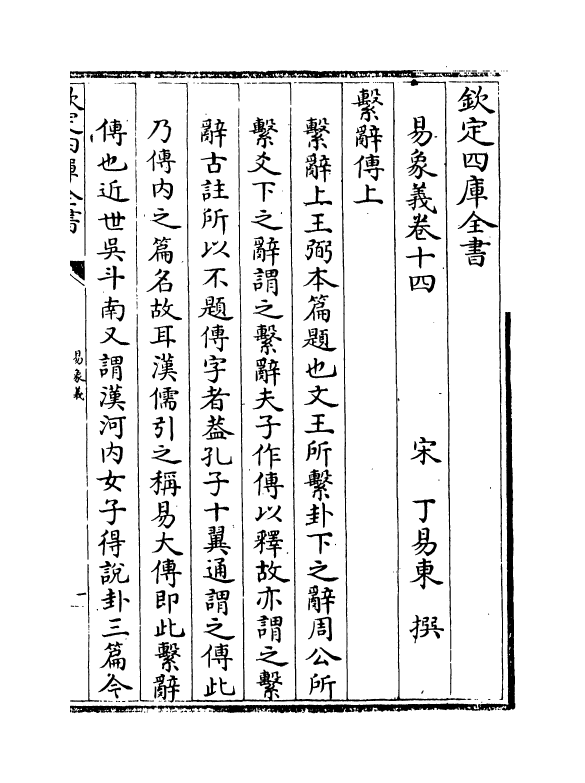 欽定四庫全書
易象義卷十四
宋 丁易東 撰
繫辭傳上
繫辭上王弼本篇題也文王所繫卦下之辭周公所
繫爻下之辭謂之繫辭夫子作傳以釋故亦謂之繫
辭古註所以不題傳字者葢孔子十翼通謂之傳此
乃傳内之篇名故耳漢儒引之稱易大傳即此繫辭
傳也近世吳斗南又謂漢河内女子得說卦三篇今
欽定四庫全書
易象義
一